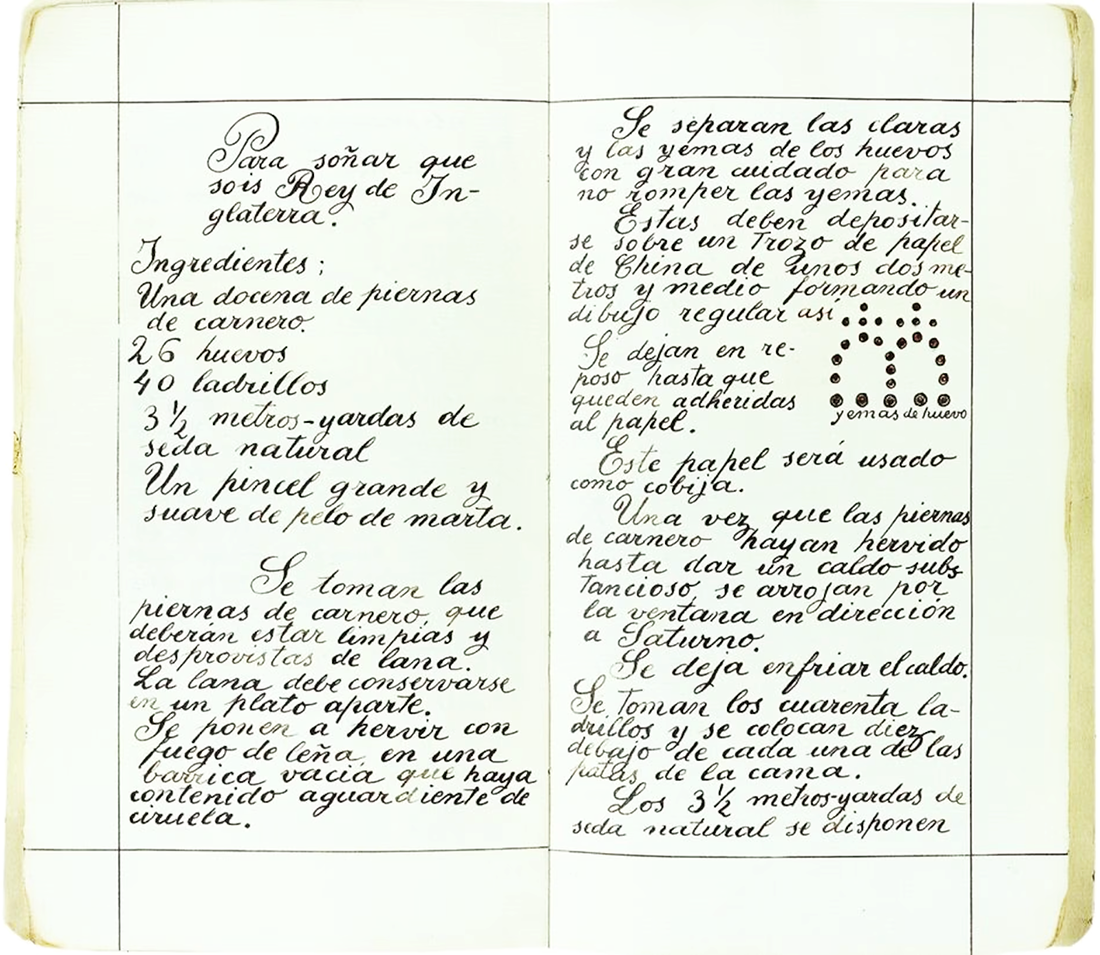 Para soñar que
sois Rey de In-
glaterra.
Ingredientes;
Una docena de piernas
de carnero.
26 huevos
40 ladrillos
3 ½ metros-yardas de
seda natural
Un pincel grande y
suave de pelo de marta.
Se toman las
piernas de carnero, que
deberán estar limpias y
desprovistas de lana.
La lana debe conservarse
en un plato aparte.
Se ponen a hervir con
fuego de leña, en una
barrica vacía que haya
contenido aguardiente de
ciruela.
Se separan las claras
y las yemas de los huevos
con gran cuidado para
no romper las yemas.
Estas deben depositar-
se sobre un Trozo de papel
de China de unos dos me-
tros y medio formando un
dibujo regular así
Se dejan en re-
poso hasta que
queden adheridas
al papel.
yemas de huevo
Este papel será usado
como cobija.
Una vez que las piernas
de carnero hayan hervido
hasta dar un caldo subs
Tancioso, se arrojan por
la ventana en dirección
a Saturno.
Se deja enfriar el caldo.
Se Toman los cuarenta la-
drillos y se colocan diez
debajo de cada una de las
patas de la cama.
Los 3 ½ metros-yardas de
seda natural se disponen